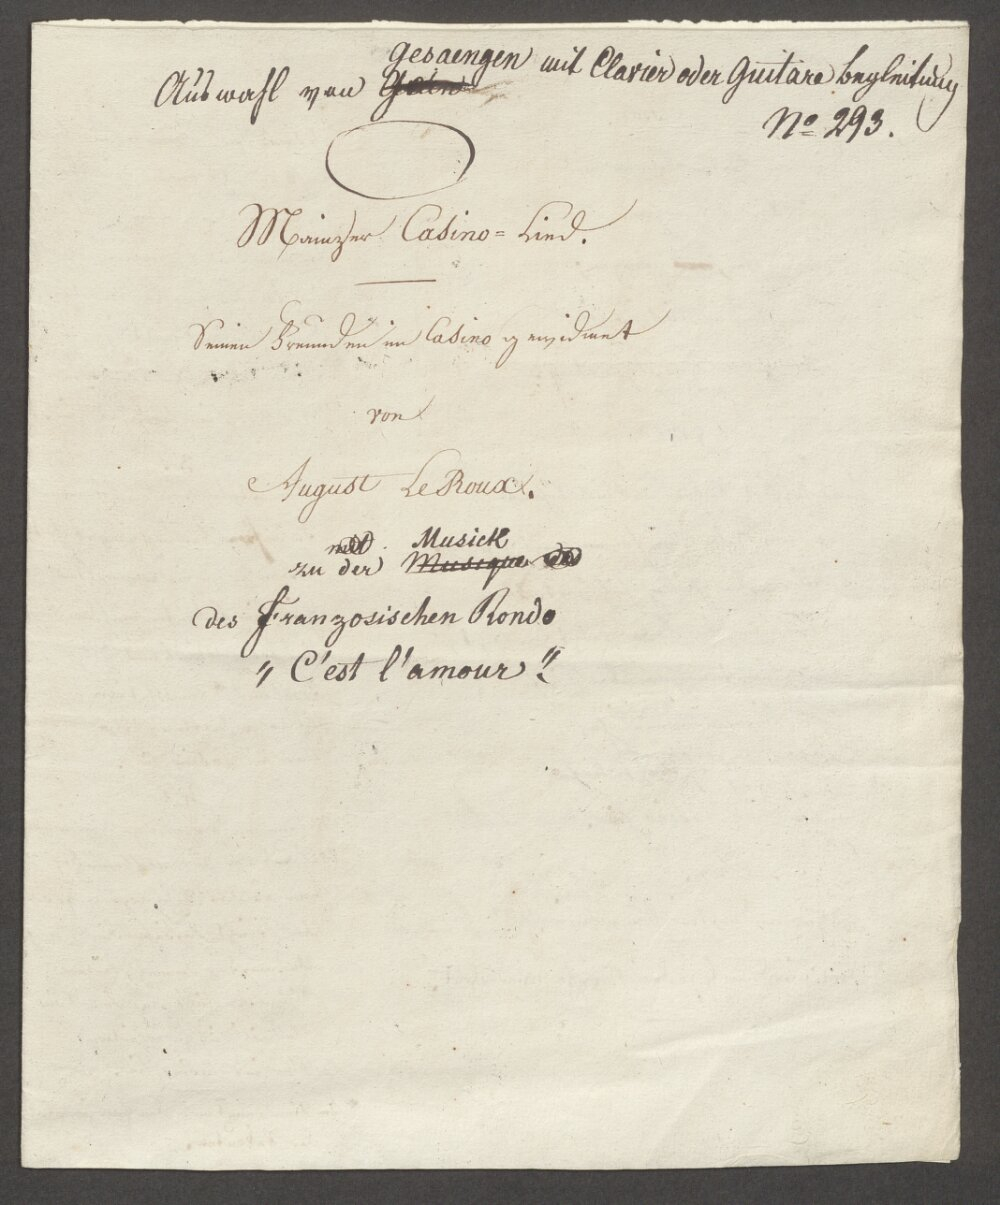 Auswahl von Gesaengen mit Clavier oder Guitare begleitung
Nº 293.
Mainzer Casino=Lied.
Seinen Freunden im Casino gewidmet
von
August Le Roux.
mit Musick
zu der Musique des
des Französischen Rondo
„ C'est l'amour "